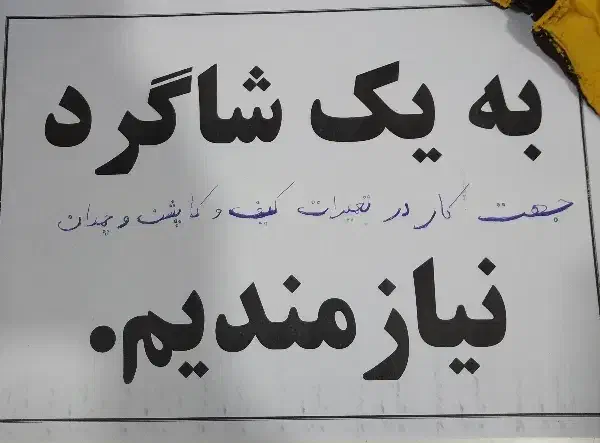 به یک شاگرد
جهت کار در تعمیرات کیف و کاپشن و چمدان
نیازمندیم.